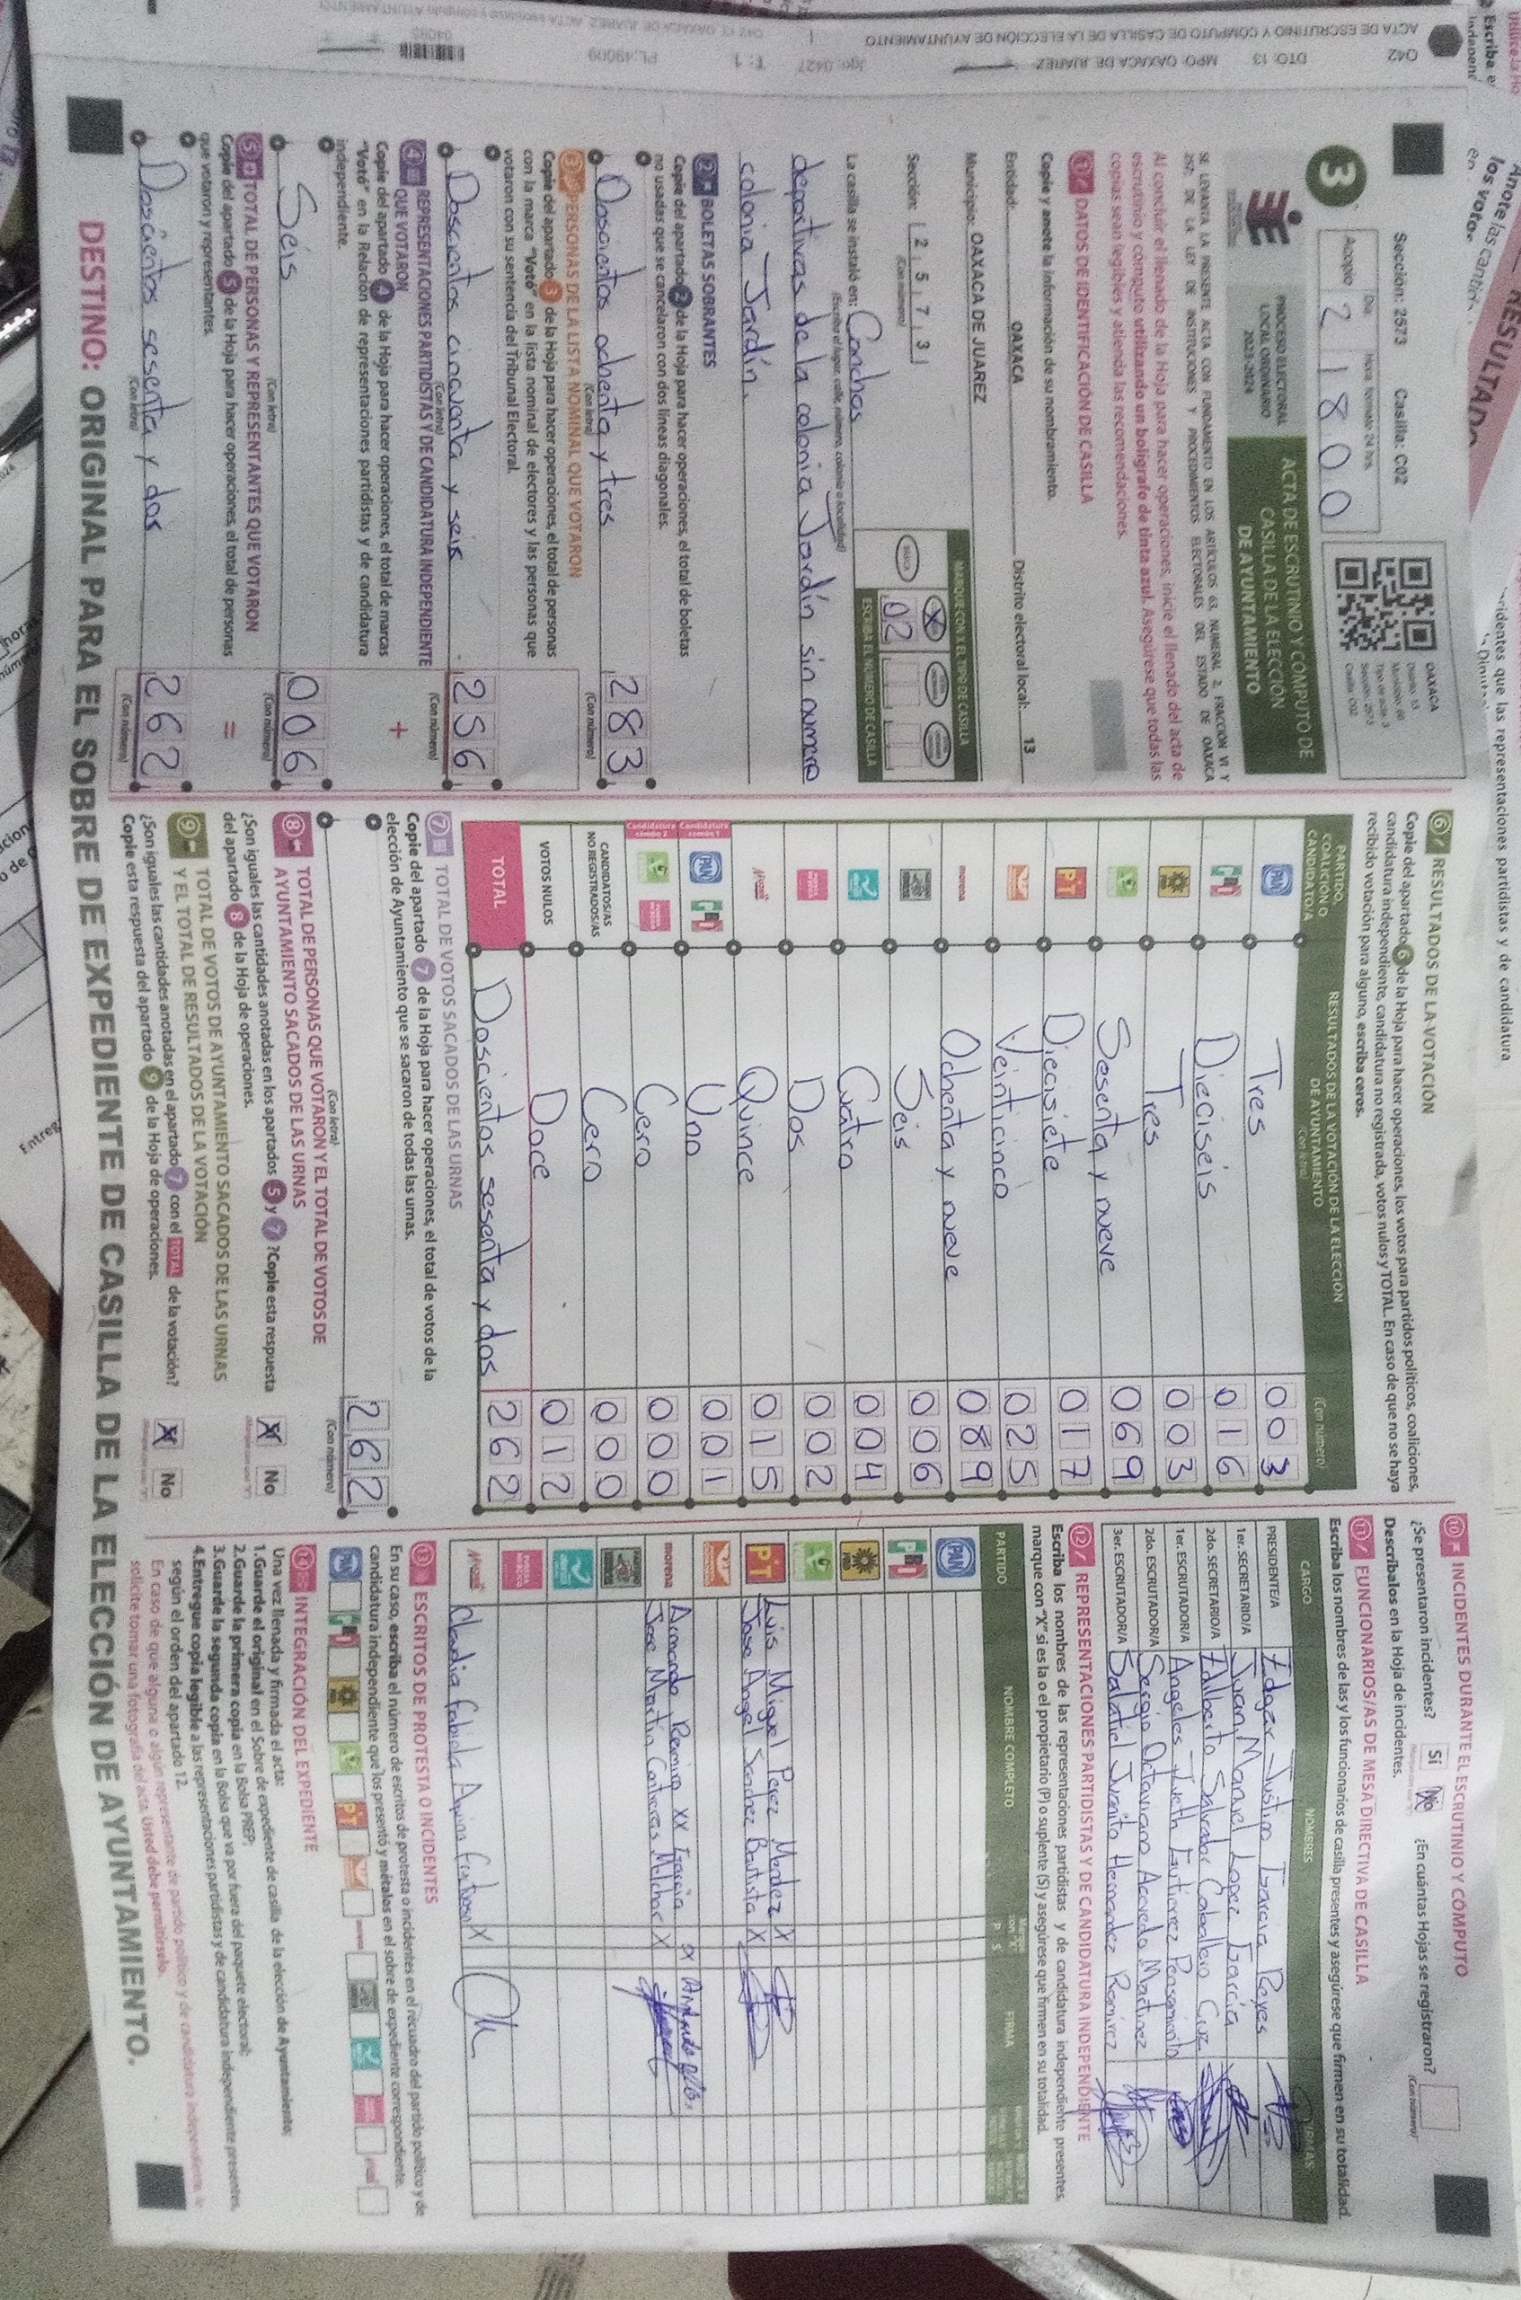 Sección: 2573 Casilla: C02
OAXACA
3
Acopio
Día
Hora formato 24 hrs.
2 1800
PROCESO ELECTORAL
LOCAL ORDINARIO
2023-2024
ACTA DE ESCRUTINIO Y CÓMPUTO DE
CASILLA DE LA ELECCIÓN
DE AYUNTAMIENTO
SE LEVANTA LA PRESENTE ACTA CON FUNDAMENTO EN LOS ARTÍCULOS 63, NUMERAL 2, FRACCIÓN VI Y
257; DE LA LEY DE INSTITUCIONES Y PROCEDIMIENTOS ELECTORALES DEL ESTADO DE OAXACA
Al concluir el llenado de la Hoja para hacer operaciones, inicie el llenado del acta de
escrutinio y cómputo utilizando un bolígrafo de tinta azul. Asegúrese que todas las
copias sean legibles y atienda las recomendaciones.
1 DATOS DE IDENTIFICACIÓN DE CASILLA
Copie y anote la información de su nombramiento.
Entidad: OAXACA Distrito electoral local: 13
Municipio: OAXACA DE JUAREZ
Sección: 2 5 7 3
(Con número)
MARQUE CON X EL TIPO DE CASILLA
BÁSICA
X
02
ESCRIBA EL NÚMERO DE CASILLA
La casilla se instaló en: Canchas
(Escriba el lugar, calle, número, colonia o localidad)
deportivas de la colonia Jardín sin numero
colonia Jardín.
2 BOLETAS SOBRANTES
Copie del apartado 2 de la Hoja para hacer operaciones, el total de boletas
no usadas que se cancelaron con dos líneas diagonales.
Doscientos ochenta y tres 283
(Con letra) (Con número)
3 PERSONAS DE LA LISTA NOMINAL QUE VOTARON
Copie del apartado 3 de la Hoja para hacer operaciones, el total de personas
con la marca "Votó" en la lista nominal de electores y las personas que
votaron con su sentencia del Tribunal Electoral.
Doscientos cincuenta y seis 256
(Con letra) (Con número)
4 REPRESENTACIONES PARTIDISTAS Y DE CANDIDATURA INDEPENDIENTE
QUE VOTARON
Copie del apartado 4 de la Hoja para hacer operaciones, el total de marcas
"Votó" en la Relación de representaciones partidistas y de candidatura
independiente.
+
Seis 006
(Con letra) (Con número)
5 TOTAL DE PERSONAS Y REPRESENTANTES QUE VOTARON
Copie del apartado 5 de la Hoja para hacer operaciones, el total de personas
que votaron y representantes.
=
Doscientos sesenta y dos 262
(Con letra) (Con número)
6 RESULTADOS DE LA VOTACIÓN
Copie del apartado 6 de la Hoja para hacer operaciones, los votos para partidos políticos, coaliciones,
candidatura independiente, candidatura no registrada, votos nulos y TOTAL. En caso de que no se haya
recibido votación para alguno, escriba ceros.
PARTIDO,
COALICIÓN O
CANDIDATO/A
RESULTADOS DE LA VOTACIÓN DE LA ELECCIÓN
DE AYUNTAMIENTO
(Con letra) (Con número)
PAN Tres 003
PRI Dieciseis 016
PRD Tres 003
Sesenta y nueve 069
PT Diecisiete 017
Veinticinco 025
morena Ochenta y nueve 089
Seis 006
Cuatro 004
Dos 002
Quince 015
PAN PRI Uno 001
Cero 000
CANDIDATOS/AS
NO REGISTRADOS/AS Cero 000
VOTOS NULOS Doce 012
TOTAL Doscientos sesenta y dos 262
7 TOTAL DE VOTOS SACADOS DE LAS URNAS
Copie del apartado 7 de la Hoja para hacer operaciones, el total de votos de la
elección de Ayuntamiento que se sacaron de todas las urnas.
262
(Con letra) (Con número)
8 TOTAL DE PERSONAS QUE VOTARON Y EL TOTAL DE VOTOS DE
AYUNTAMIENTO SACADOS DE LAS URNAS
¿Son iguales las cantidades anotadas en los apartados 5 y 7 ?Copie esta respuesta
del apartado 8 de la Hoja de operaciones.
X No
9 TOTAL DE VOTOS DE AYUNTAMIENTO SACADOS DE LAS URNAS
Y EL TOTAL DE RESULTADOS DE LA VOTACIÓN
¿Son iguales las cantidades anotadas en el apartado 7 con el TOTAL de la votación?
Copie esta respuesta del apartado 9 de la Hoja de operaciones.
X No
10 INCIDENTES DURANTE EL ESCRUTINIO Y CÓMPUTO
¿Se presentaron incidentes? Sí No ¿En cuántas Hojas se registraron?
(Con número)
Descríbalos en la Hoja de incidentes.
11 FUNCIONARIOS/AS DE MESA DIRECTIVA DE CASILLA
Escriba los nombres de las y los funcionarios de casilla presentes y asegúrese que firmen en su totalidad.
CARGO NOMBRES FIRMAS
PRESIDENTE/A Edgar Justim Garcia Reyes
1er. SECRETARIO/A Juan Manuel Lopez Garcia
2do. SECRETARIO/A Edilberto Salvador Caballero Cruz
1er. ESCRUTADOR/A Angeles Iveth Gutierrez
2do. ESCRUTADOR/A Sergio Octaviano Acevedo Martinez
3er. ESCRUTADOR/A Salatiel Juanito Hernandez Ramirez
12 REPRESENTACIONES PARTIDISTAS Y DE CANDIDATURA INDEPENDIENTE
Escriba los nombres de las representaciones partidistas y de candidatura independiente presentes,
marque con "X" si es la o el propietario (P) o suplente (S) y asegúrese que firmen en su totalidad.
PARTIDO NOMBRE COMPLETO P S FIRMA
PAN
PRI
PRD
PT Luis Miguel Perez Mendez X
Jose Angel Sanchez Bautista X
morena Armando Ramirez xx Garcia
Jose Martin Contreras Melchor X
Claudia Fabiola Aquino X
13 ESCRITOS DE PROTESTA O INCIDENTES
En su caso, escriba el número de escritos de protesta o incidentes en el recuadro del partido político y de
candidatura independiente que los presentó y métalos en el sobre de expediente correspondiente.
14 INTEGRACIÓN DEL EXPEDIENTE
Una vez llenada y firmada el acta:
1.Guarde el original en el Sobre de expediente de casilla de la elección de Ayuntamiento;
2.Guarde la primera copia en la Bolsa PREP;
3.Guarde la segunda copia en la Bolsa que va por fuera del paquete electoral;
4.Entregue copia legible a las representaciones partidistas y de candidatura independiente presentes,
según el orden del apartado 12.
En caso de que alguna o algún representante de partido político y de candidatura independiente, le
solicite tomar una fotografía del acta. Usted debe permitírselo.
DESTINO: ORIGINAL PARA EL SOBRE DE EXPEDIENTE DE CASILLA DE LA ELECCIÓN DE AYUNTAMIENTO.
042 DTO: 13 MPO: OAXACA DE JUAREZ
ACTA DE ESCRUTINIO Y CÓMPUTO DE CASILLA DE LA ELECCIÓN DE AYUNTAMIENTO